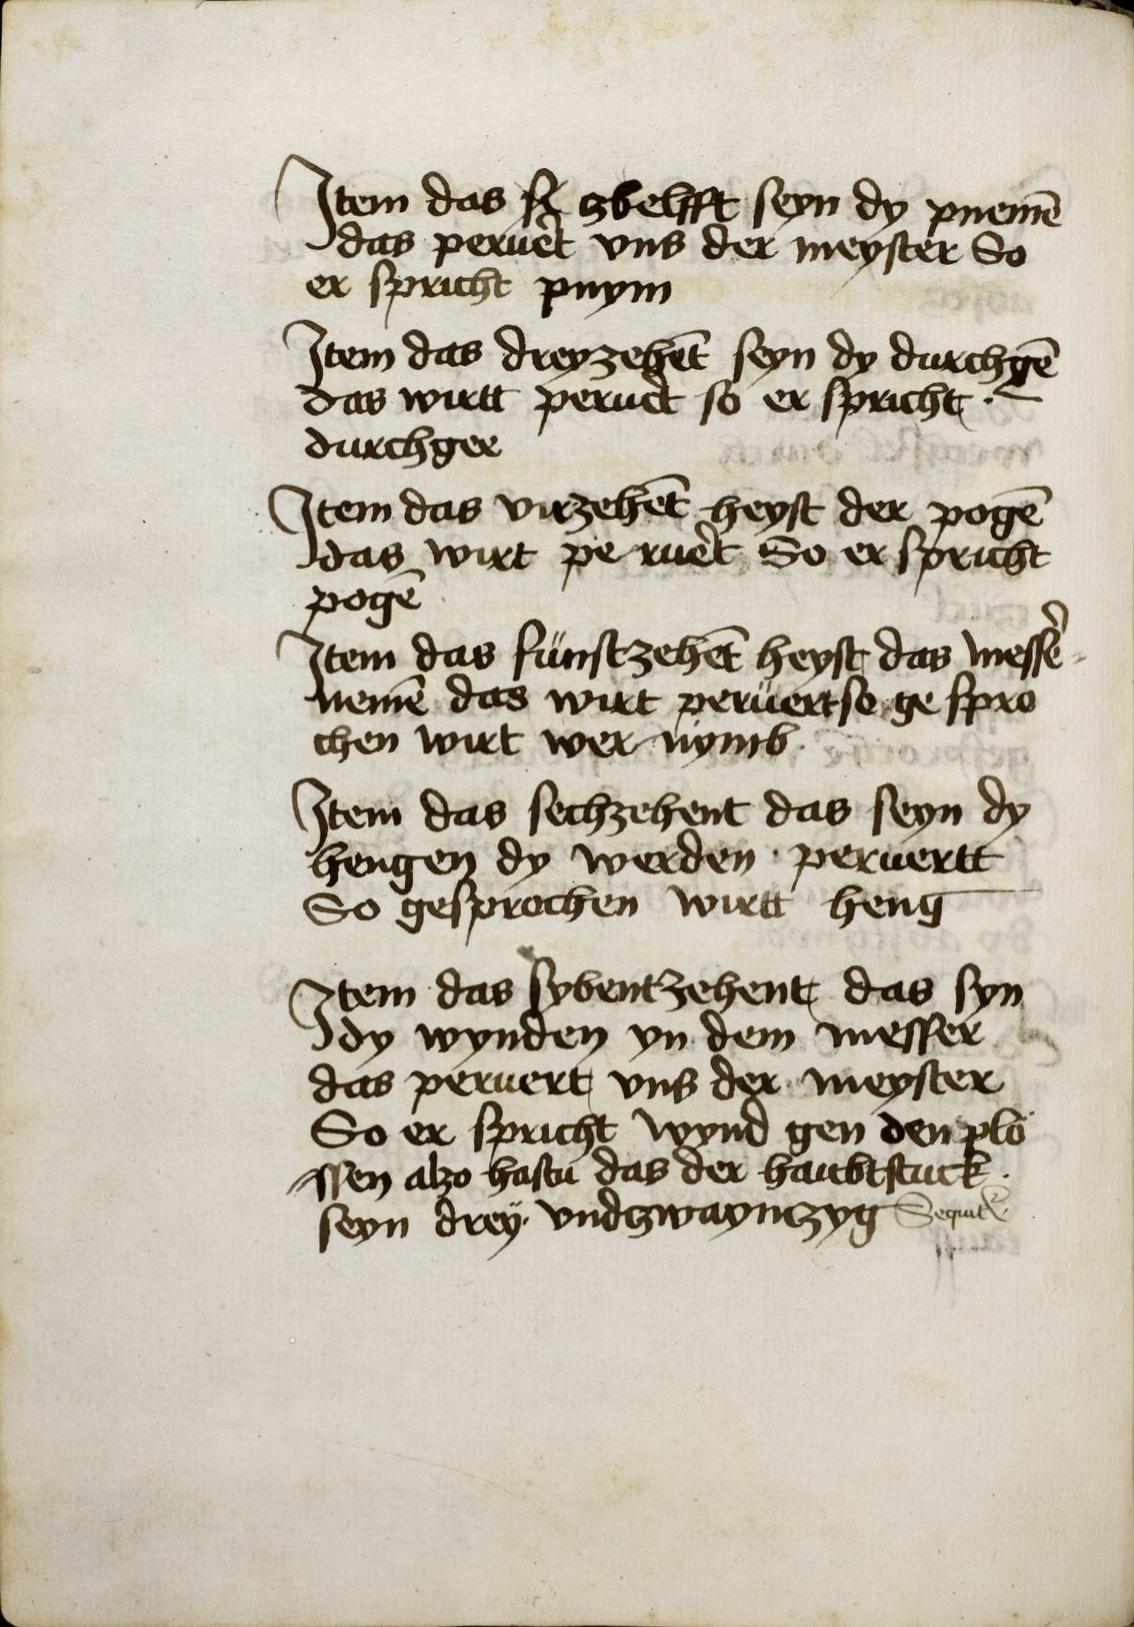 Item das zbelfft seyn dy pnemē
das peruět vns der meyster So
er spricht pnym
Item das dreyzehēt seyn dy durchgē
das wirtt peruět so er spricht ·
durchger
Item das virzehēt heyst der pogē
das wirt pe ruět So er spricht
pogē
Item das fünftzehēt heyst das messě
nemē das wirt perüert so ge spro
chen wirt wer nymb
Item das sechzehent das seyn dy
hengen dy werden · peruertt
So gesprochen wirtt heng
Item das sybentzehent das syn
dy wynden yn dem messer
das peruert vns der meyster
So er spricht wynd gen den plo
ssen alzo hastu das der haubtstuck ·
seyn drey · vndczwaynczyg Sequit᷑